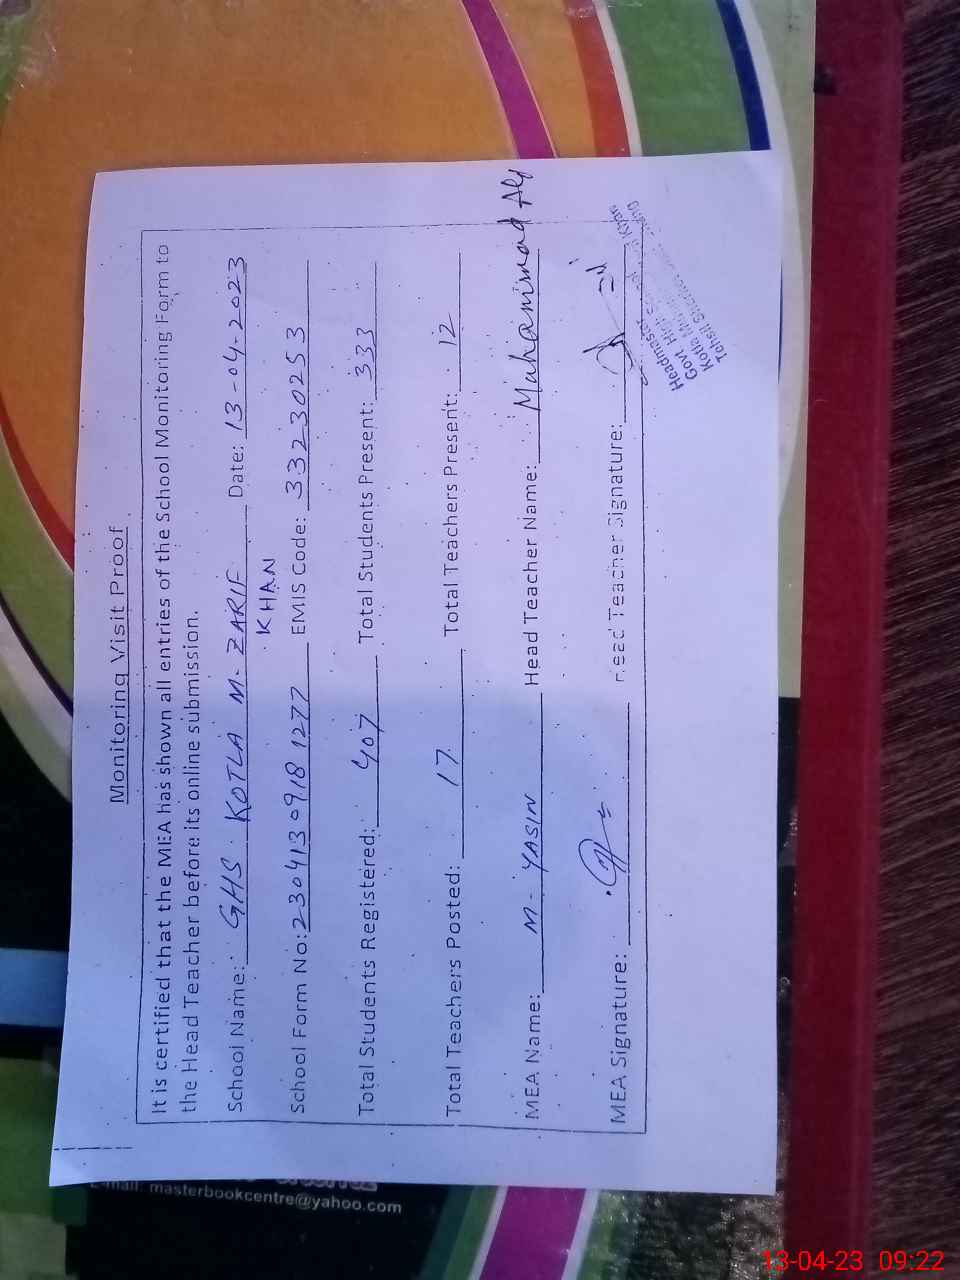 Monitoring Visit Proof
It is certified that the MEA has shown all entries of the School Monitoring Form to
the Head Teacher before its online submission.
School Name: GHS KOTLA M- ZARIF KHAN Date: 13-04-2023
School Form No: 2304130918 1277 EMIS Code: 33230253
Total Students Registered: 407 Total Students Present: 333
Total Teachers Posted: 17 Total Teachers Present: 12
MEA Name: M- YASIN Head Teacher Name: Muhammad
MEA Signature: Head Teacher Signature:
Headmaster
Govt. High
Kotla
Tehsil
E-mail: masterbookcentre@yahoo.com
13-04-23 09:22